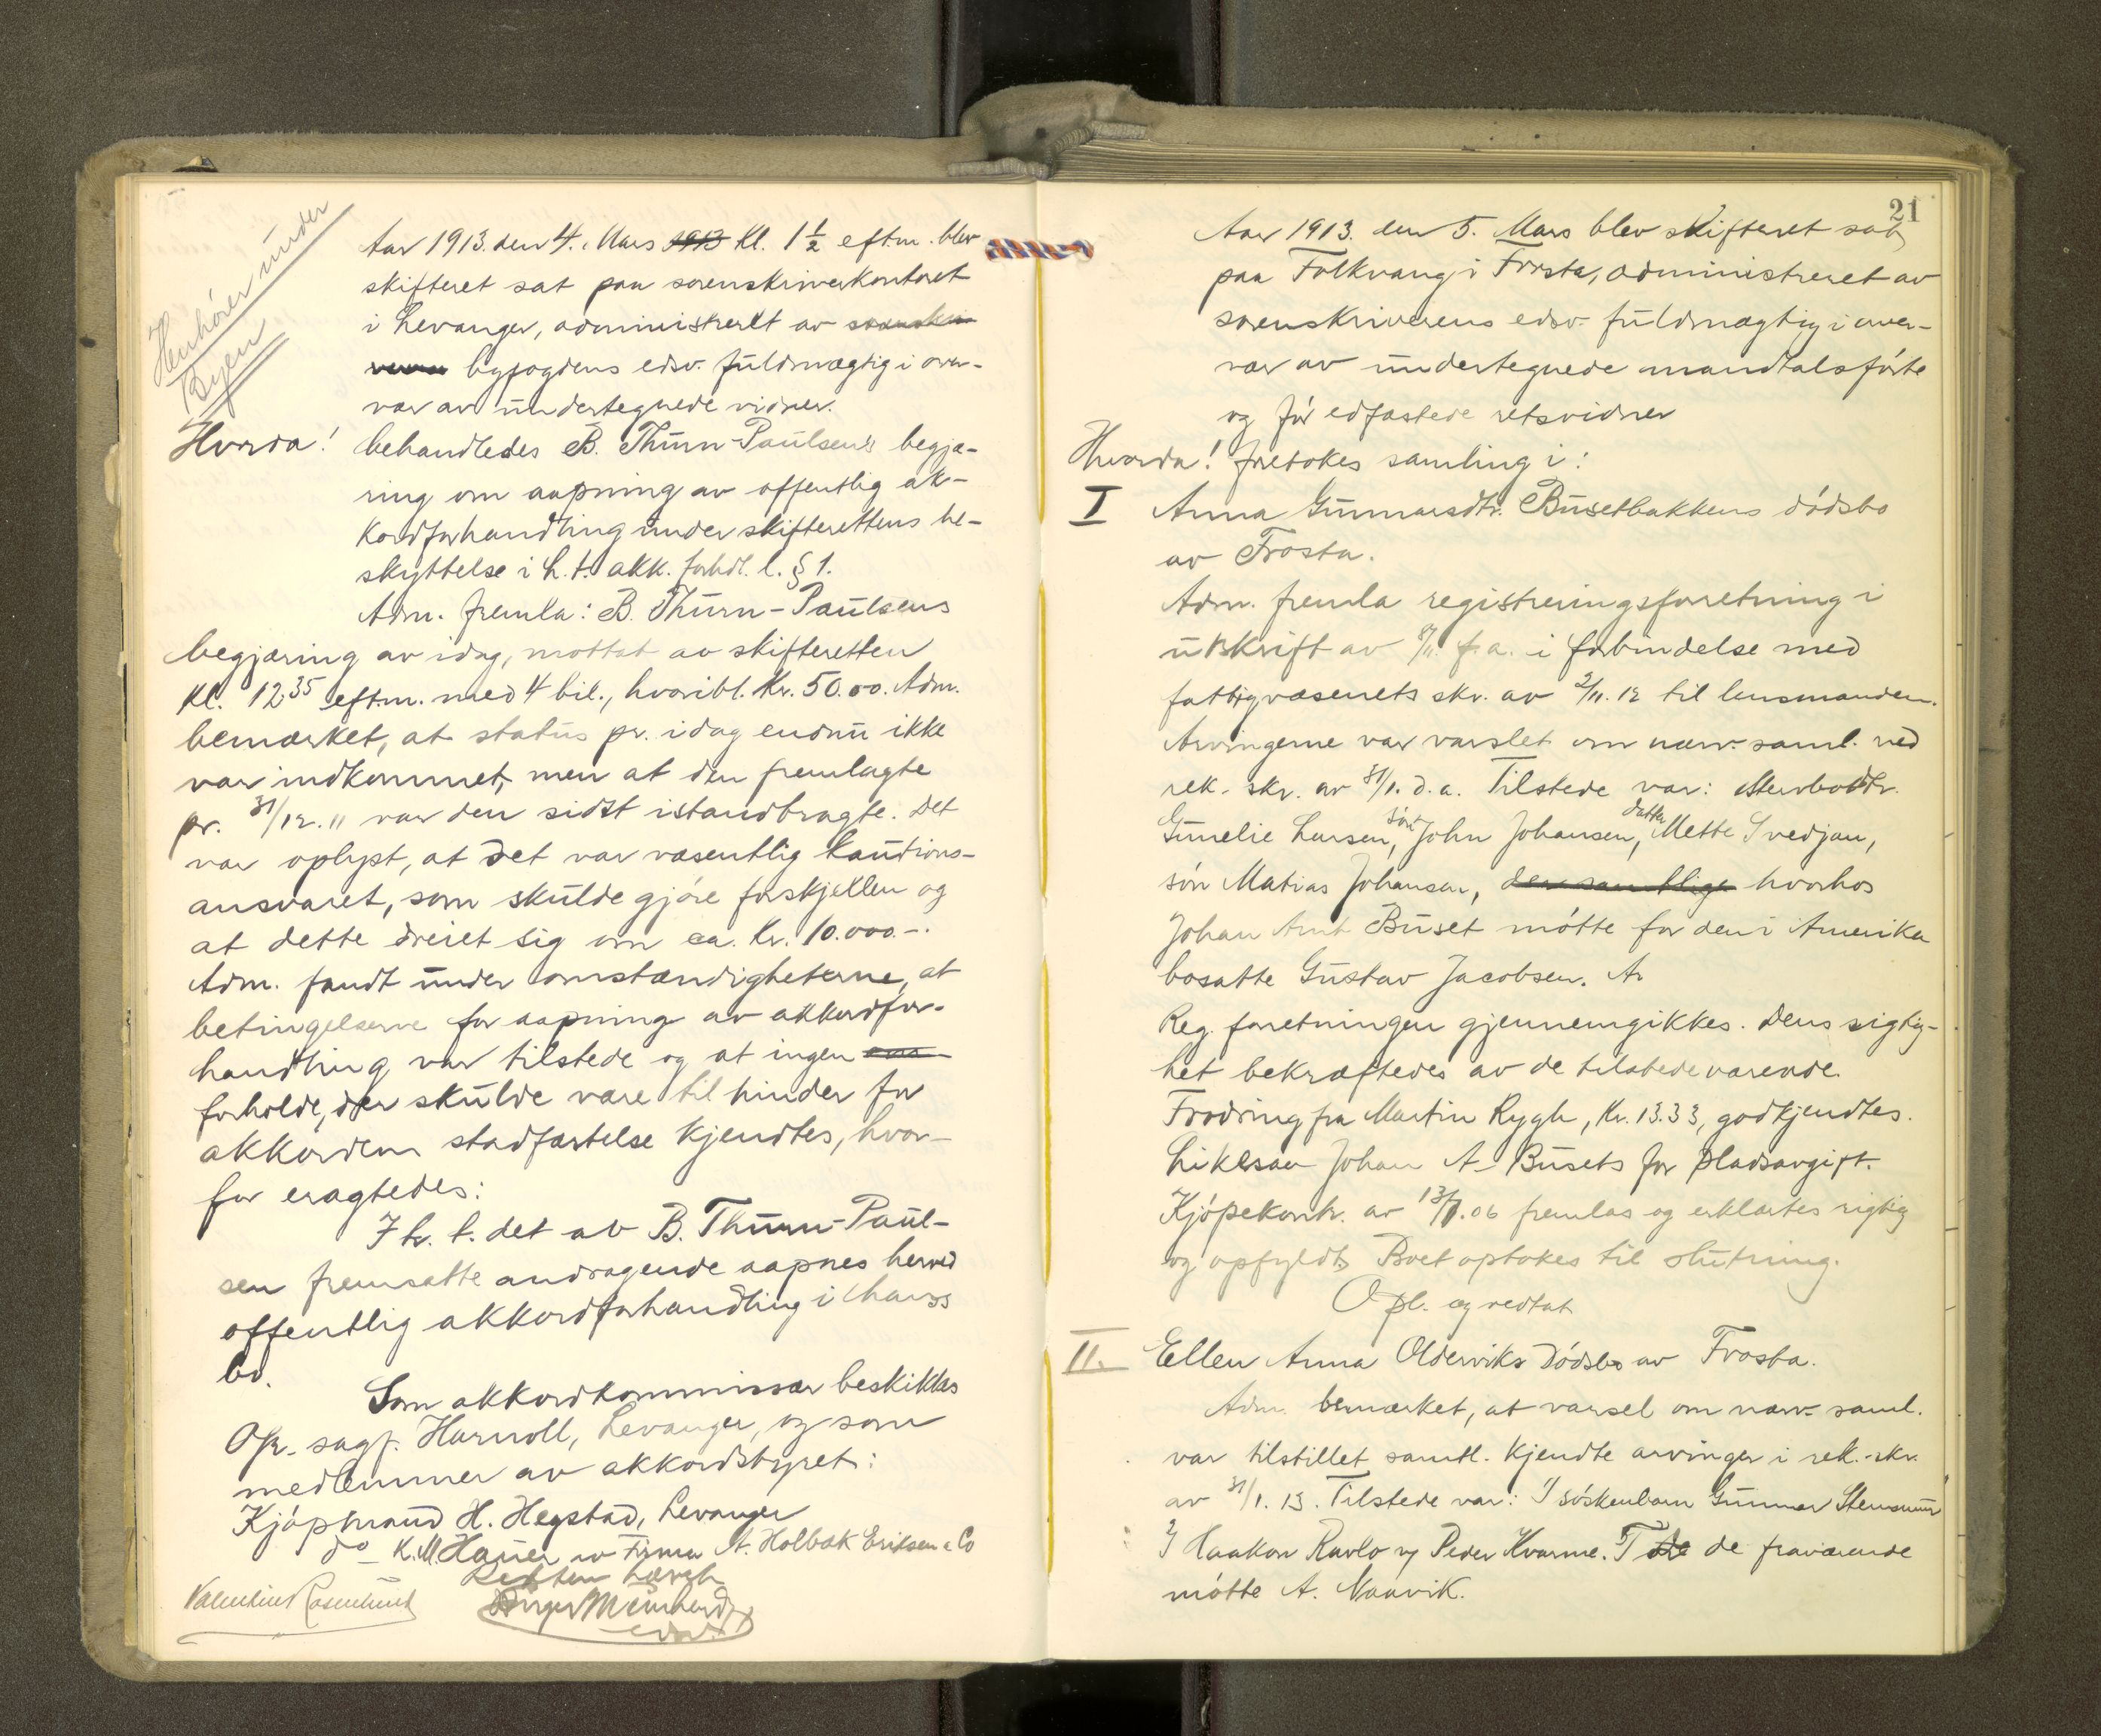 Henhörer under
Byen
Aar 1913. den 4. Mars 1913 Kl. 1 1/2 eftm. blev
skifteret sat paa sorenskriverkontoret
i Levanger, administrert av
byfogdens edsv. fuldmægtig i over-
vær av undertegnede vidner.
Hvorda! behandledes B. Thurn-Paulsens begjæ-
ring om aapning av offentlig ak-
kordforhandling under skifterettens be-
skyttelse i h.t. akk. forhdl. l. § 1.
Adm. fremla: B. Thurn-Paulsens
begjæring av idag, mottat av skifteretten
Kl. 12.35 eftm. med 4 bil., hvoribl. Kr. 50.00. Adm.
bemærket, at status pr. idag endnu ikke
var indkommet, men at den fremlagte
pr. 31/12.11 var den sidst istandbragte. Det
var oplyst, at det var væsentlig kautions-
ansvaret, som skulde gjöre forskjellen og
at dette dreiet sig om ca. Kr. 10.000.-.
Adm. fandt under omstændigheterne, at
betingelserne for aapning av akkordfor-
handling var tilstede og at ingen
forholde, der skulde være til hinder for
akkordens stadfæstelse kjendtes, hvor-
for eragtedes:
I h. t. det av B. Thurn-Paul-
sen fremsatte andragende aapnes herved
offentlig akkordforhandling i hans
bo.
Som akkordkommissær beskikkes
Opr. sagf. Harnoll, Levanger, og som
medlemmer av akkordstyret:
Kjöpmand H. Hegstad, Levanger
do - K. M. Hauer av Firma A. Holbæk Eriksen & Co
Retten hævet
Valentine Rosenlund
21
Aar 1913. den 5. Mars blev skifteret sat
paa Folkvang i Frosta, administreret av
sorenskriverens edsv. fuldmægtig i over-
vær av undertegnede mandtalsförte
og för edfæstede retsvidner
Hvorda! foretokes samling i:
I Anna Gunnarsdtr. Busetbakkens dödsbo
av Frosta.
Adm. fremla registreringsforretning i
utskrift av 8/11. f.a. i forbindelse med
fattigvæsenets skr. av 2/11.12 til lensmanden.
Arvingerne var varslet om nærv. saml. ved
rek. skr. av 31/1. d.a. Tilstede var: Stervbodtr.
Gunelie Larsen, sön John Johansen, datter Mette Svedjan,
sön Matias Johansen, den samtlige hvorhos
Johan Arnt Buset mötte for den i Amerika
bosatte Gustav Jacobsen. Ar
Reg. forretningen gjennemgikkes. Dens rigtig-
het bekræftedes av de tilstedeværende.
Fordring fra Martin Rygh, Kr. 13.33, godkjendtes.
Likesaa Johan A. Busets for pladsavgift.
Kjöpekontr. av 13/1.06 fremlas og erklærtes rigtig
og opfyldt. Boet optokes til slutning.
Opl. og vedtat
II. Ellen Anna Olderviks dödsbo av Frosta.
Adm. bemærket, at varsel om nærv. saml.
var tilstillet samtl. kjendte arvinger i rek.-skr.
av 31/1. 13. Tilstede var: 1/ söskenbarn Gunnar
2/ Haakon Ravlo og Peder Kvarme. F de de fraværende
mötte A. Naavik.